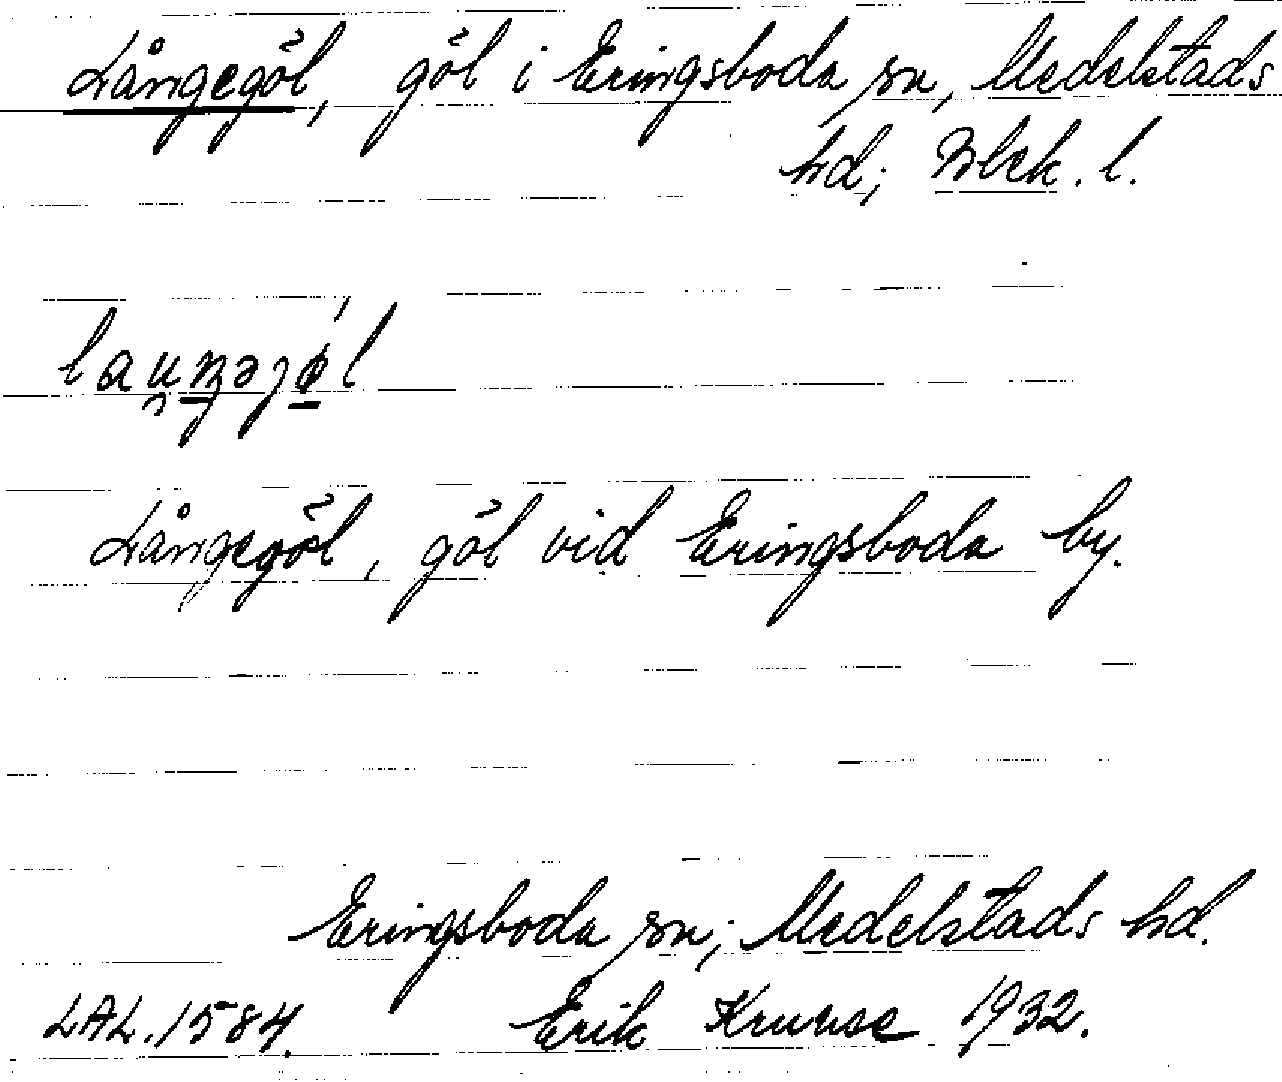 Långegöl, göl i Eringsboda sn, Medelstads
hd; Blek. l.
Långegöl, göl vid Eringsboda by.
Eringsboda sn; Medelstads hd.
LAL. 1584. Erik Kruuse 1932.